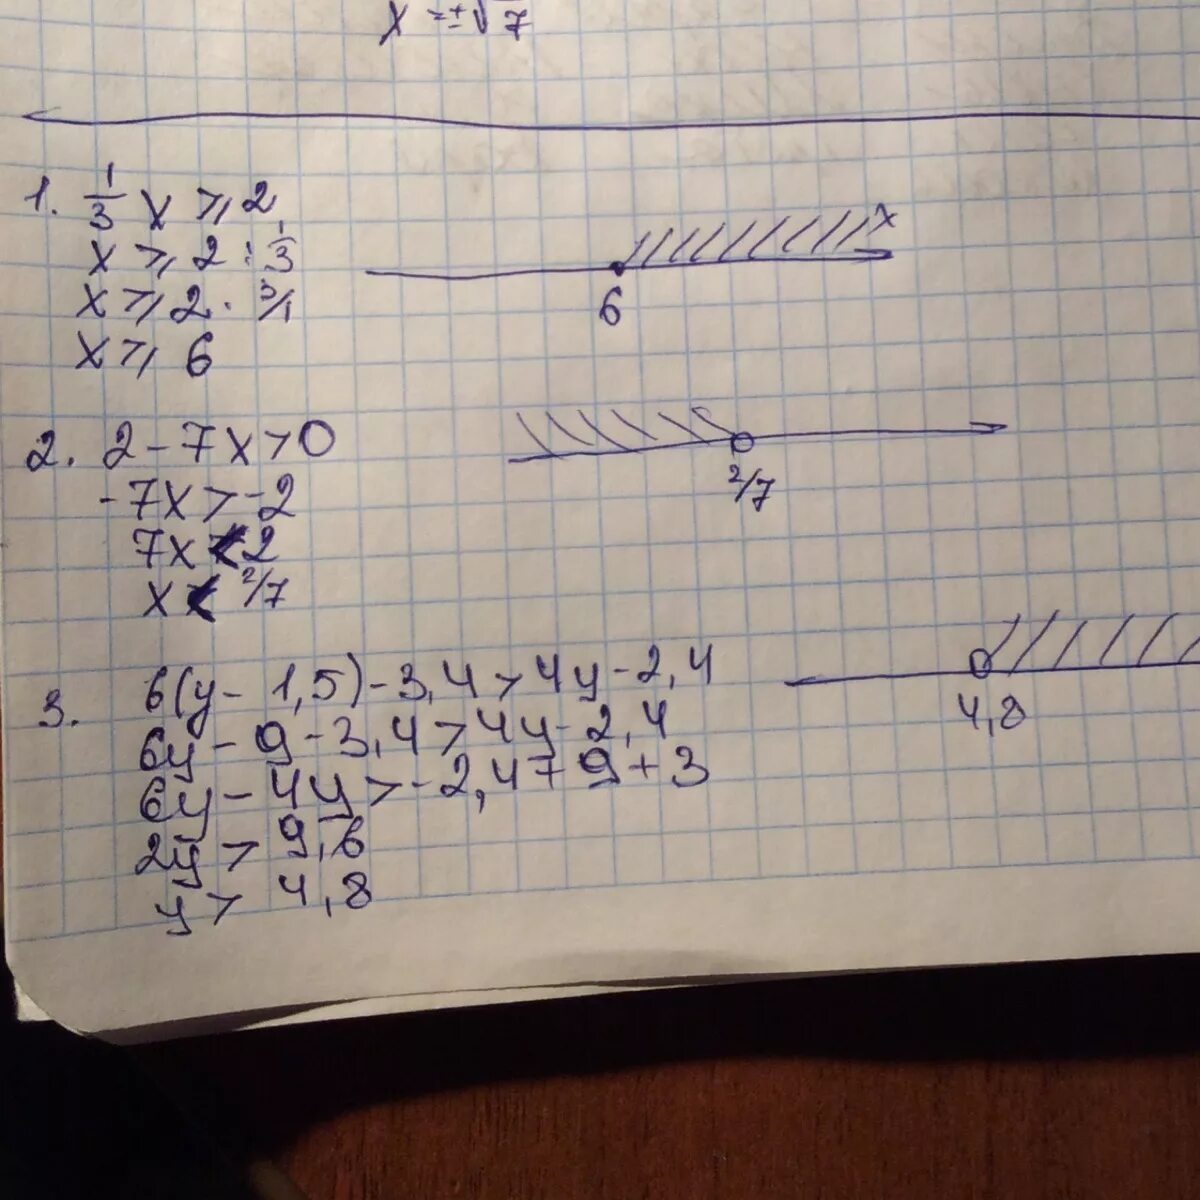 x = ±√7
1. 1/3 x ⩾ 2
x ⩾ 2 : 1/3
x ⩾ 2 · 3/1
x ⩾ 6
x
6
2. 2 - 7x > 0
-7x > -2
7x < 2
x < 2/7
2/7
3. 6(y - 1,5) - 3,4 > 4y - 2,4
6y - 9 - 3,4 > 4y - 2,4
6y - 4y > -2,4 + 9 + 3
2y > 9,6
y > 4,8
4,8